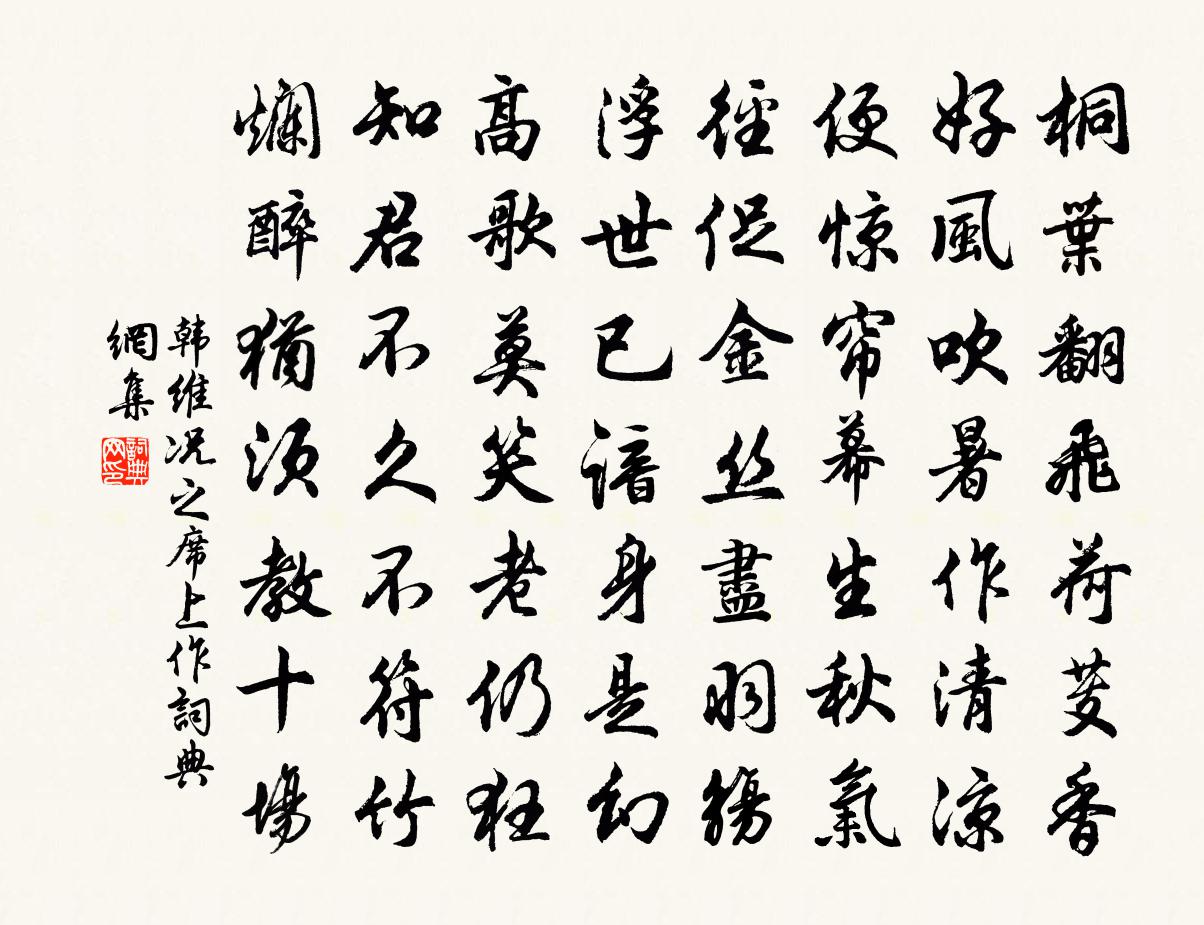 桐葉翻飛荷芰香
好風吹暑作清涼
便惊帘幕生秋氣
徑促金丝盡羽觴
浮世已谙身是幻
高歌莫笑老仍狂
知君不久不符竹
爛醉猶須教十場
韩維况之席上作詞典
網集
詞典
网印